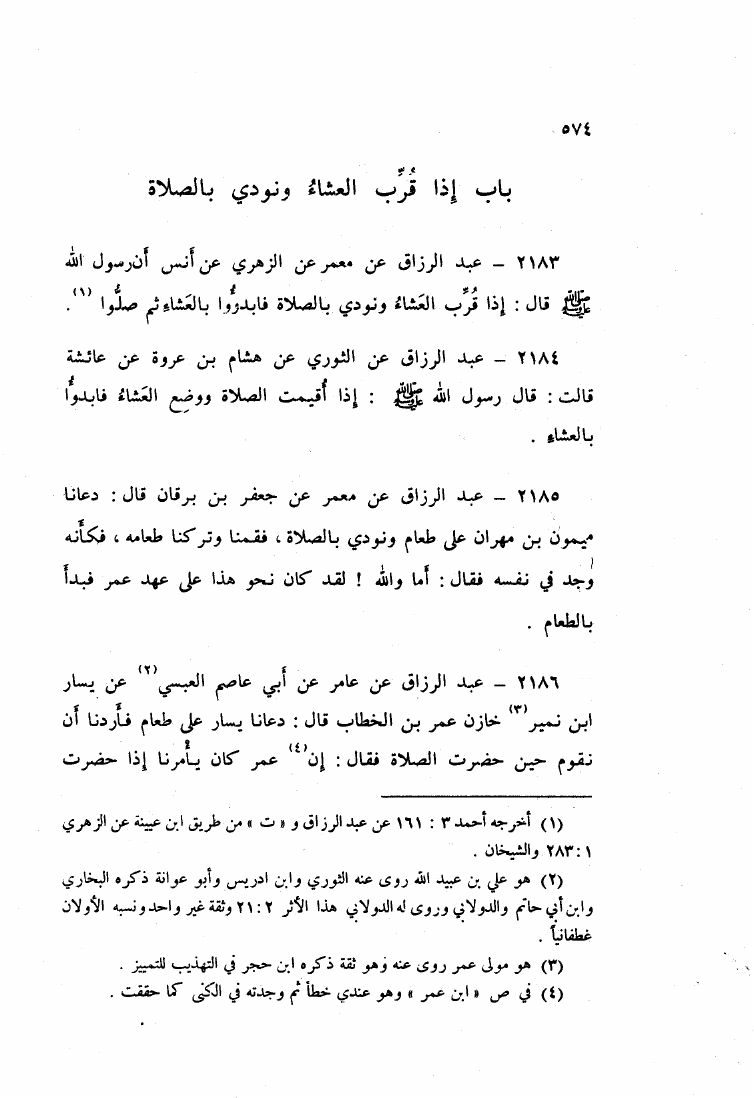 ٥٧٤
باب إذا قُرِّب العشاءُ ونودي بالصلاة
٢١٨٣ – عبد الرزاق عن معمر عن الزهري عن أنس أن رسول الله
ﷺ قال : إذا قُرِّب العَشاءُ ونودي بالصلاة فابدوُّا بالعَشاءِ ثم صلُّوا (١) .
٢١٨٤ – عبد الرزاق عن الثوري عن هشام بن عروة عن عائشة
قالت : قال رسول الله ﷺ : إذا أُقيمت الصلاة ووضع العَشاءُ فابدوُّا
بالعشاءِ .
٢١٨٥ – عبد الرزاق عن معمر عن جعفر بن برقان قال : دعانا
ميمون بن مهران على طعام ونودي بالصلاة ، فقمنا وتركنا طعامه ، فكأنه
وجد في نفسه فقال : أما والله ! لقد كان نحو هذا على عهد عمر فبدأ
بالطعام .
٢١٨٦ – عبد الرزاق عن عامر عن أبي عاصم العبسي (٢) عن يسار
ابن نمير (٣) خازن عمر بن الخطاب قال : دعانا يسار على طعام فأردنا أن
نقوم حين حضرت الصلاة فقال : إن (٤) عمر كان يأمرنا إذا حضرت
(١) أخرجه أحمد ٣ : ١٦١ عن عبد الرزاق و « ت » من طريق ابن عيينة عن الزهري
٢٨٣:١ والشيخان .
(٢) هو علي بن عبيد الله روى عنه الثوري وابن ادريس وأبو عوانة ذكره البخاري
وابن أبي حاتم والدولابي وروى له الدولابي هذا الأثر ٢١:٢ وثقة غير واحد ونسبه الأولان
غطفانياً .
(٣) هو مولى عمر روى عنه وهو ثقة ذكره ابن حجر في التهذيب للتمييز .
(٤) في ص « ابن عمر » وهو عندي خطأ ثم وجدته في الكنى كما حققت .